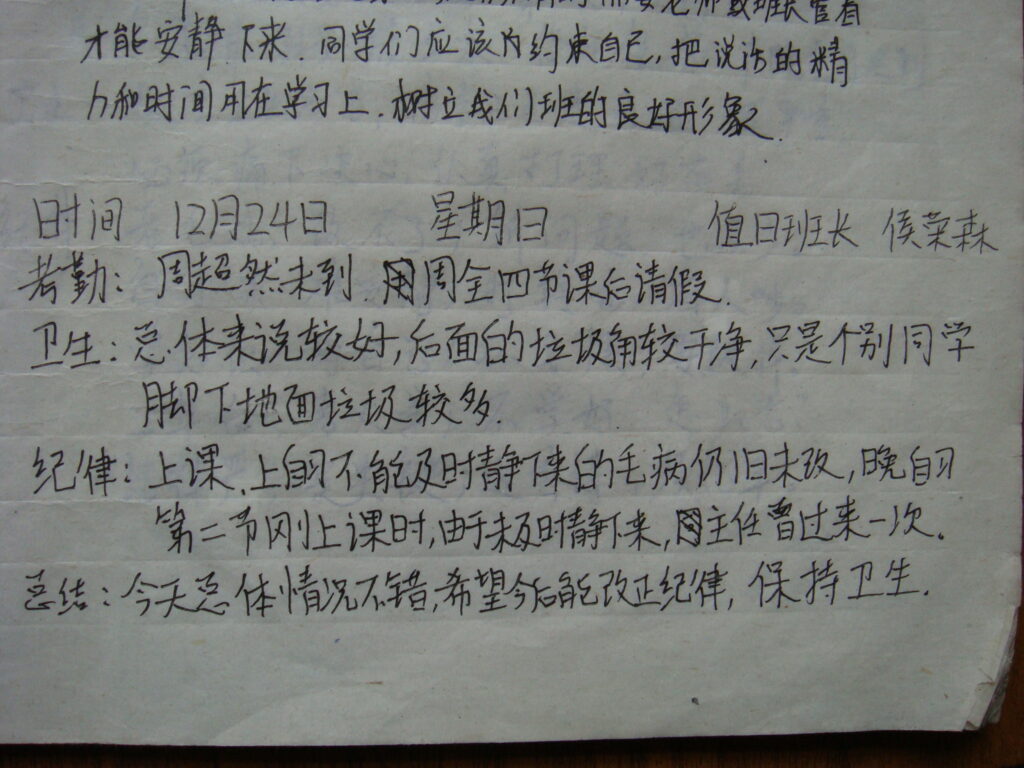 老师或班长管着
才能安静下来.同学们应该内约束自己,把说话的精
力和时间用在学习上.树立我们班的良好形象.
时间 12月24日 星期日 值日班长 侯荣森
考勤: 周超然未到.周全四节课后请假.
卫生:总体来说较好,后面的垃圾角较干净,只是个别同学
脚下地面垃圾较多.
纪律:上课、上自习不能及时静下来的毛病仍旧未改,晚自习
第二节刚上课时,由于未及时静下来,周主任曾过来一次。
总结:今天总体情况不错,希望今后能改正纪律,保持卫生.